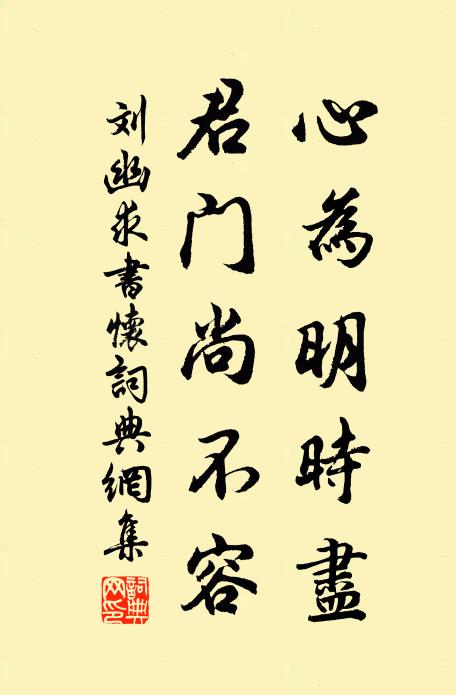 心為明時盡
君门尚不容
刘幽求書懷詞典網集
詞典
网印